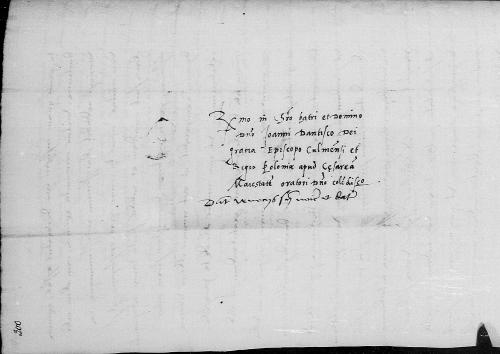 Rmo in Chro patri et Domino
Dno Joanni Dantisco Dei
gratia Episcopo Culmensi et
Regio Poloniæ apud Cęsaream
Maiestatē oratori Dno
Dat
200